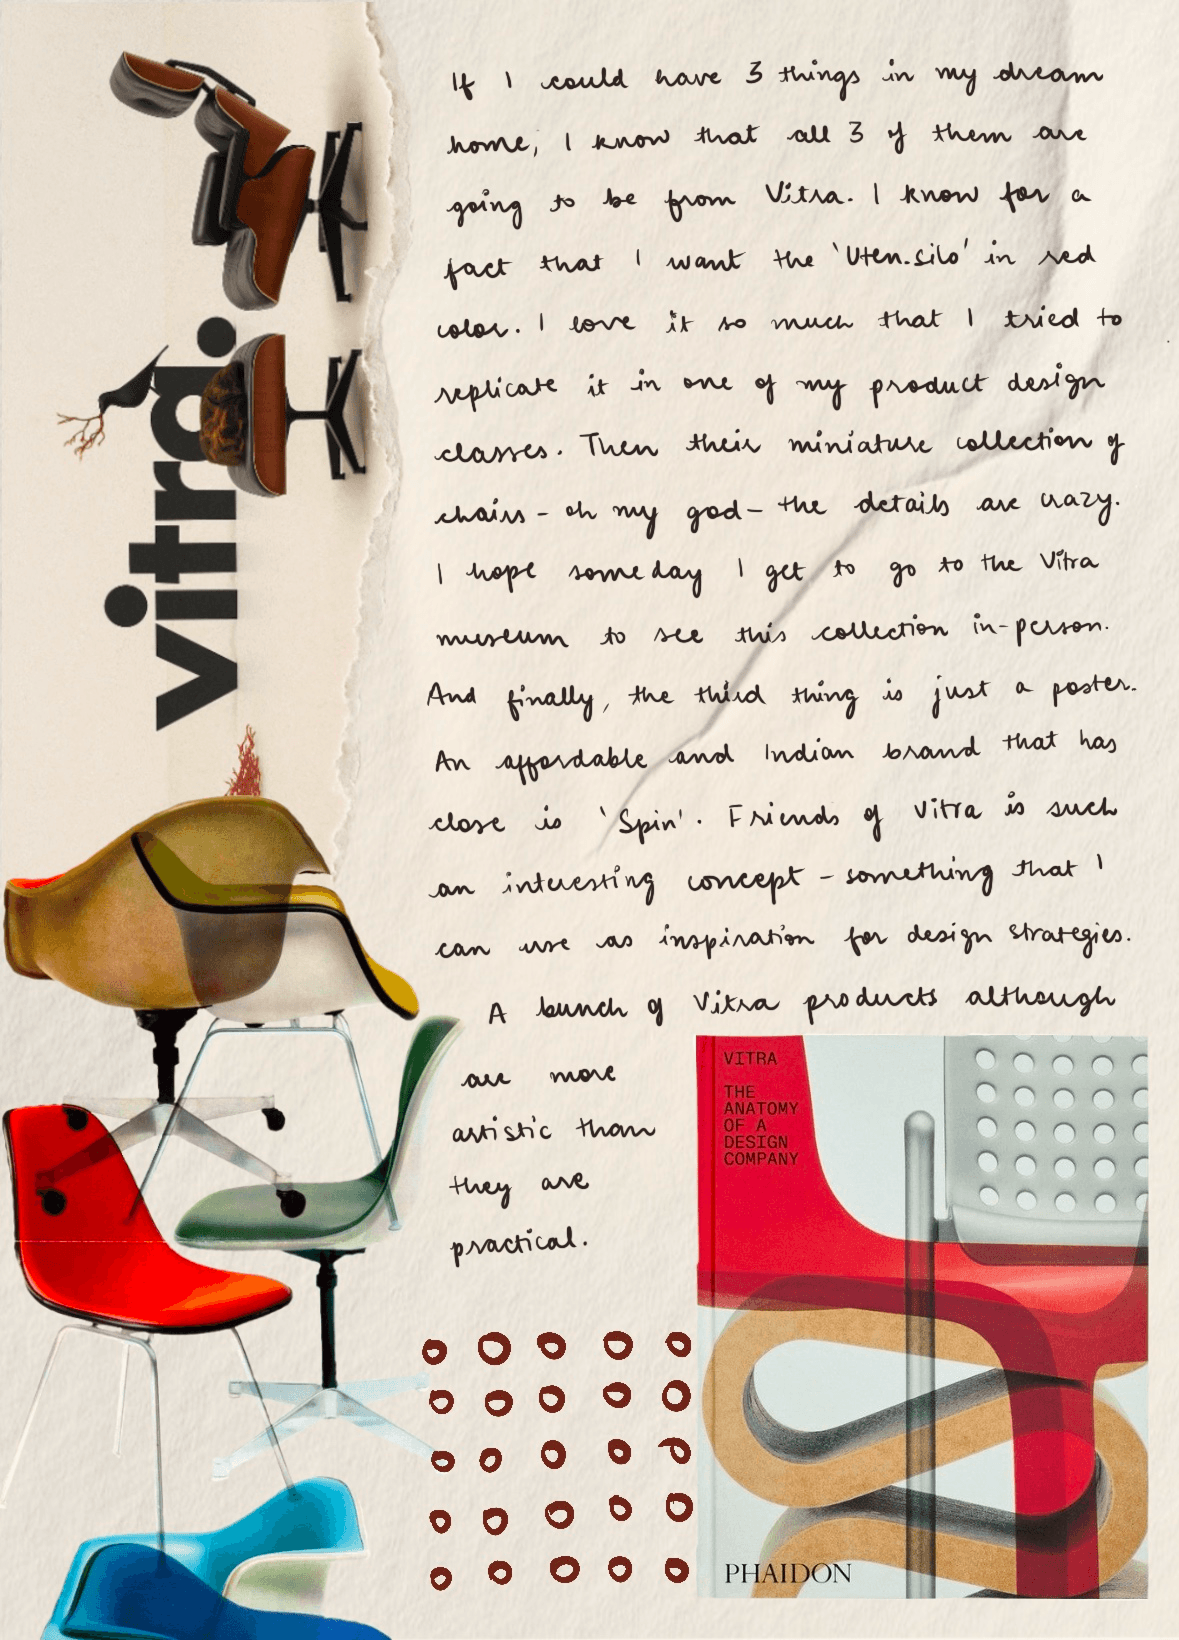 vitra.
If I could have 3 things in my dream
home, I know that all 3 of them are
going to be from Vitra. I know for a
fact that I want the 'Uten.silo' in red
color. I love it so much that I tried to
replicate it in one of my product design
classes. Then their miniature collection of
chairs - oh my god - the details are crazy.
I hope someday I get to go to the Vitra
museum to see this collection in-person.
And finally, the third thing is just a poster.
An affordable and Indian brand that has
close is 'Spin'. Friends of Vitra is such
an interesting concept - something that I
can use as inspiration for design strategies.
A bunch of Vitra products although
are more
artistic than
they are
practical.
VITRA
THE
ANATOMY
OF A
DESIGN
COMPANY
PHAIDON